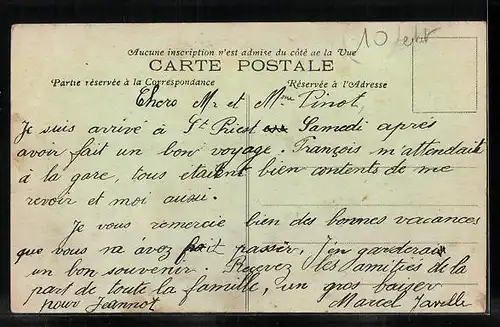 10
Aucune inscription n'est admise du côté de la Vue
CARTE POSTALE
Partie réservée à la Correspondance
Réservée à l'Adresse
Chers Mr et Mme Pinot,
Je suis arrivé à St Priest Samedi après
avoir fait un bon voyage. François m'attendait
à la gare, tous étaient bien contents de me
revoir et moi aussi.
Je vous remercie bien des bonnes vacances
que vous m'avez fait passer. J'en garderai
un bon souvenir. Recevez les amitiés de la
part de toute la famille, un gros baiser
pour Jeannot Marcel